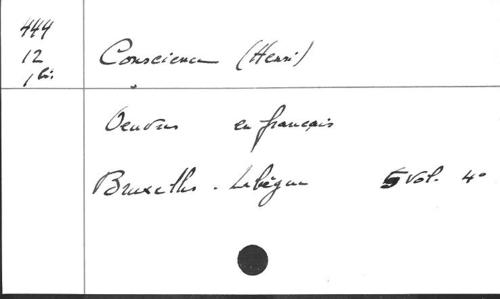 444
12 Conscience (Henri)
1 bis
Oeuvres en français
Bruxelles. Lebègue 5 vol. 4°